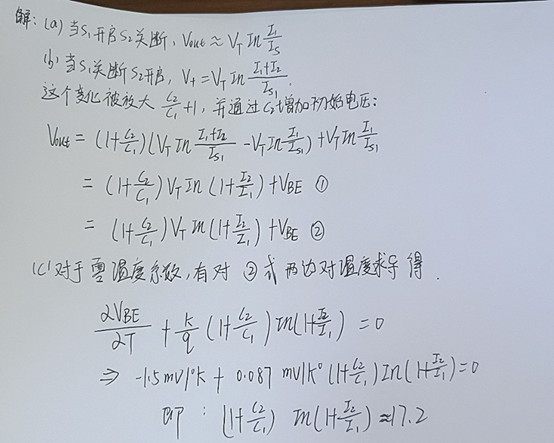 解：(a) 当S₁开启S₂关断，Vout ≈ V_T In I₁/Is
(b) 当S₁关断S₂开启，V₊ = V_T In (I₁+I₂)/Is₁
这个变化被放大 C₂/C₁ +1，并通过C₂增加初始电压：
Vout = (1+C₂/C₁)(V_T In (I₁+I₂)/Is₁ - V_T In I₁/Is₁) + V_T In I₁/Is₁
= (1+C₂/C₁) V_T In (1+I₂/I₁) + VBE ①
= (1+C₂/C₁) V_T In (1+I₂/I₁) + VBE ②
(c) 对于零温度系数，有对 ② 式两边对温度求导得.
∂VBE/∂T + k/q (1+C₂/C₁) In(1+I₂/I₁) = 0
⇒ -1.5mV/°K + 0.087 mV/K° (1+C₂/C₁) In (1+I₂/I₁) = 0
即：(1+C₂/C₁) In (1+I₂/I₁) ≈ 17.2